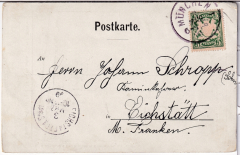 Postkarte.
MÜNCHEN
Herrn Johann Schropp
Kaminkehrer
Eichstätt
M. Franken